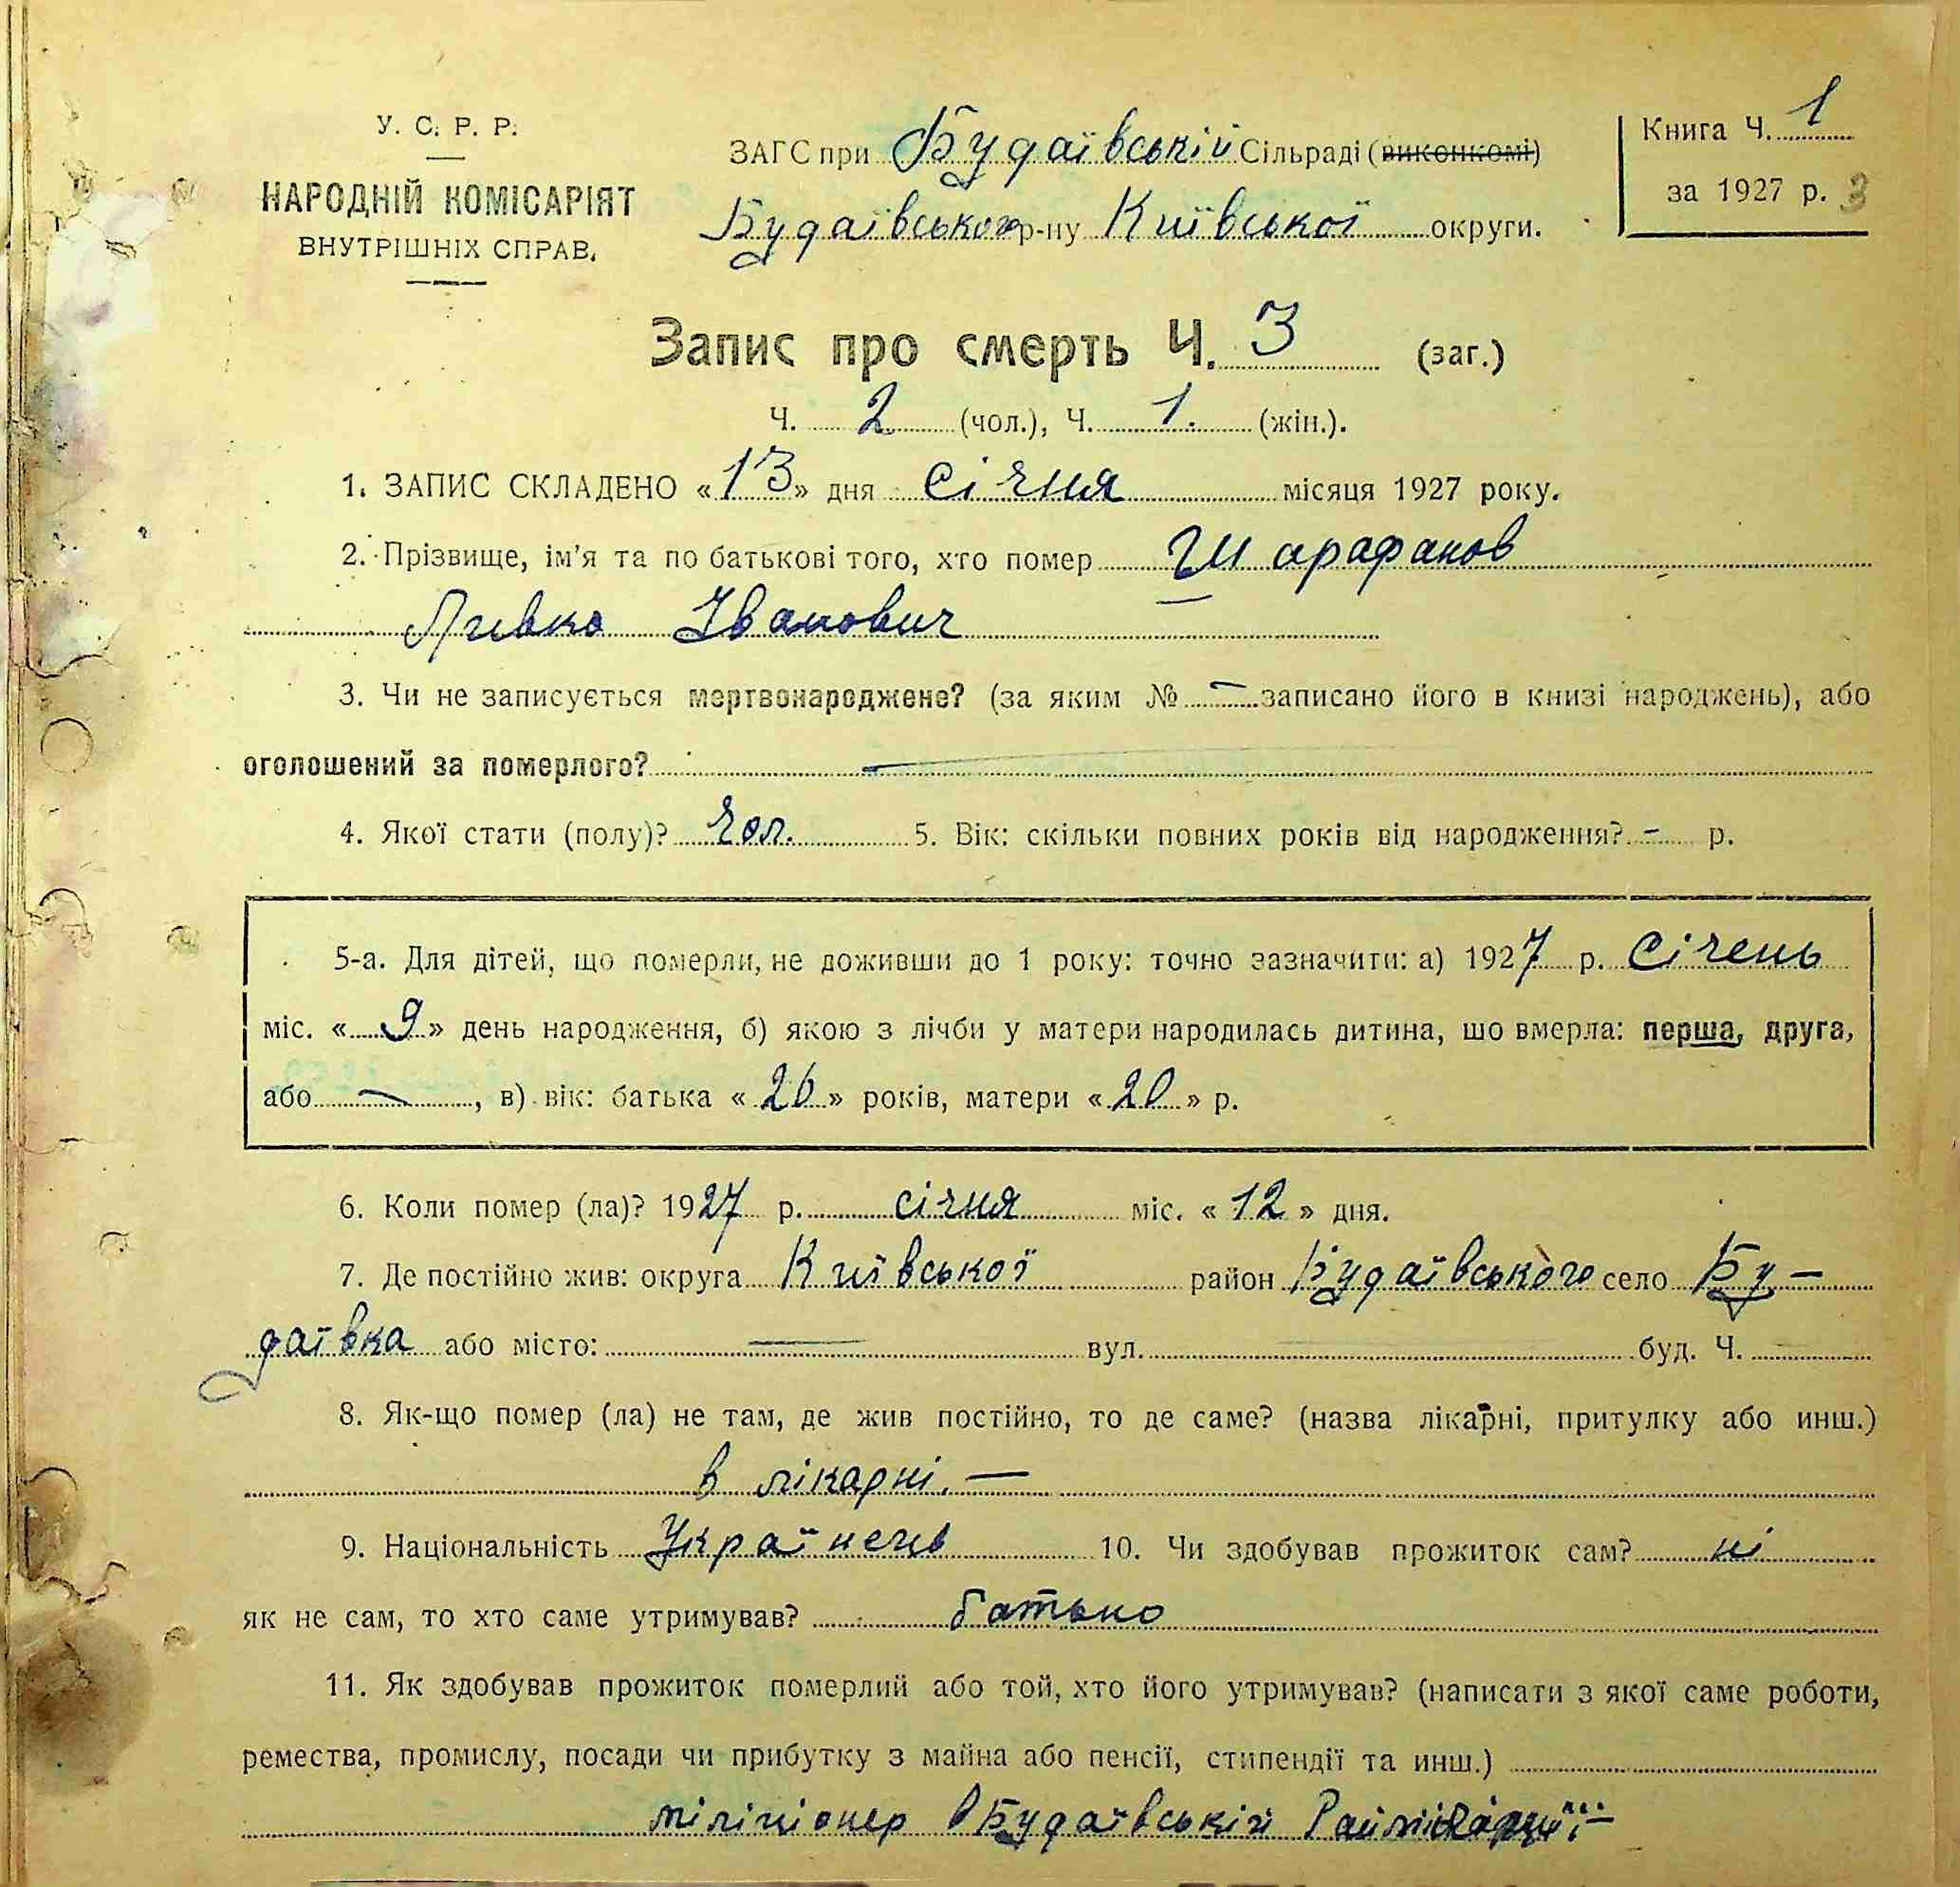 У. С. Р. Р.
НАРОДНІЙ КОМІСАРІЯТ
ВНУТРІШНІХ СПРАВ.
ЗАГС при Будаївській Сільраді (виконкомі)
Будаївського р-ну Київської округи.
Книга Ч. 1
за 1927 р. 3
Запис про смерть Ч. 3 (заг.)
Ч. 2 (чол.), Ч. 1. (жін.).
1. ЗАПИС СКЛАДЕНО «13» дня січня місяця 1927 року.
2. Прізвище, ім'я та по батькові того, хто помер Шарафанов
Іванович
3. Чи не записується мертвонароджене? (за яким № — записано його в книзі народжень), або
оголошений за померлого? —
4. Якої стати (полу)? Чол. 5. Вік: скільки повних років від народження? - р.
5-а. Для дітей, що померли, не доживши до 1 року: точно зазначити: а) 1927 р. Січень
міс. «9» день народження, б) якою з лічби у матери народилась дитина, шо вмерла: перша, друга,
або —, в) вік: батька «26» років, матери «20» р.
6. Коли помер (ла)? 1927 р. січня міс. «12» дня.
7. Де постійно жив: округа Київської район Будаївського село Бу-
даївка або місто: — вул. — буд. Ч. —
8. Як-що помер (ла) не там, де жив постійно, то де саме? (назва лікарні, притулку або инш.)
в лікарні. —
9. Національність Українець 10. Чи здобував прожиток сам? ні
як не сам, то хто саме утримував? батько
11. Як здобував прожиток померлий або той, хто його утримував? (написати з якої саме роботи,
ремества, промислу, посади чи прибутку з майна або пенсії, стипендії та инш.)
міліціонер в Будаївській